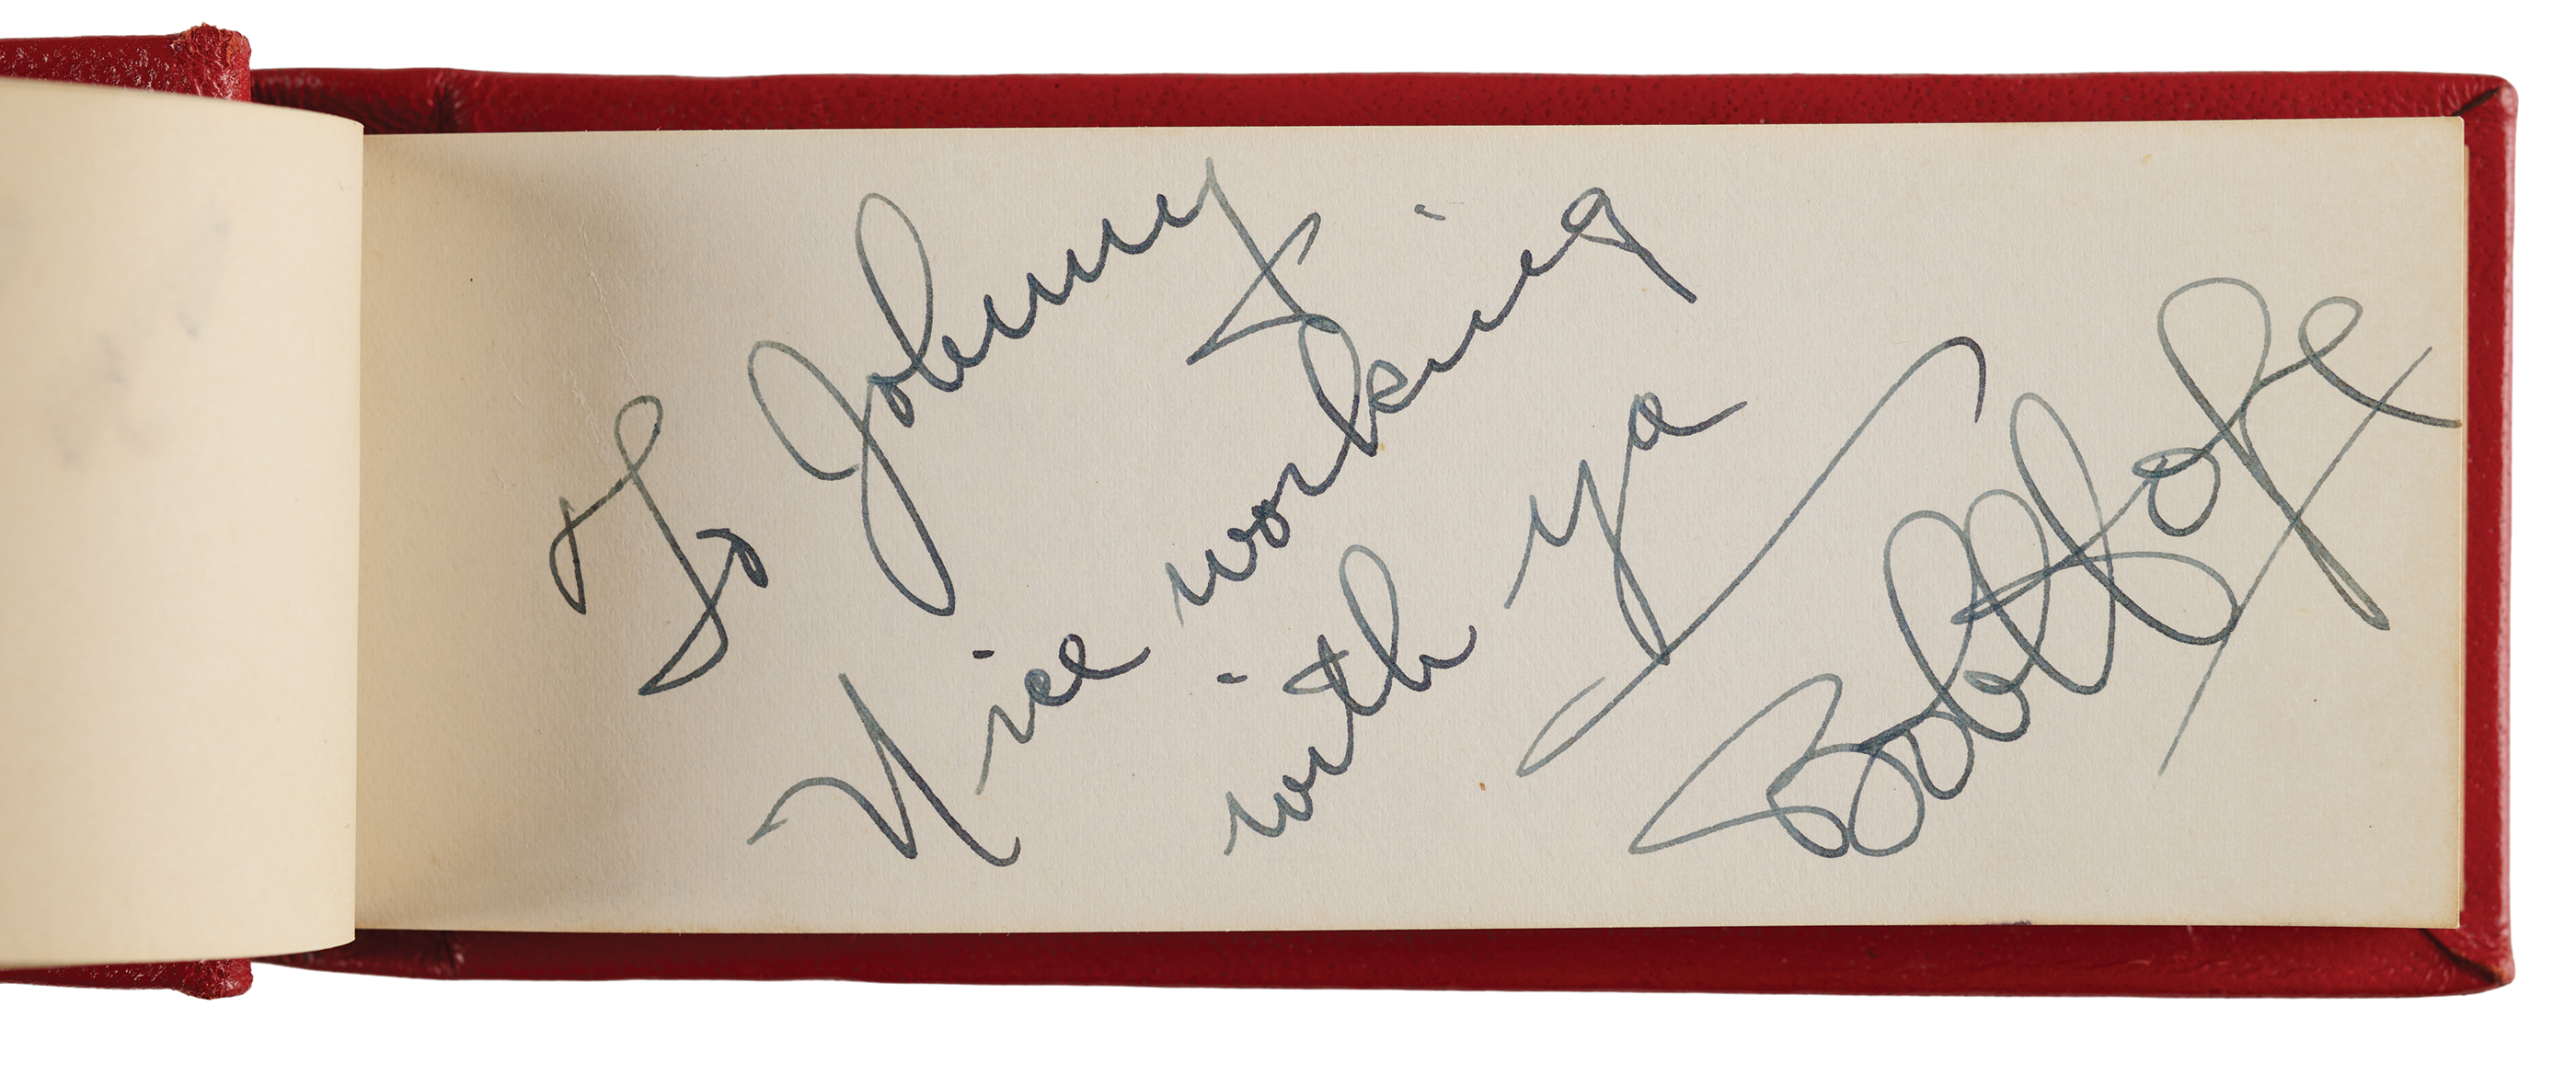 To Johnny
Nice working
with ya
Bob Hope